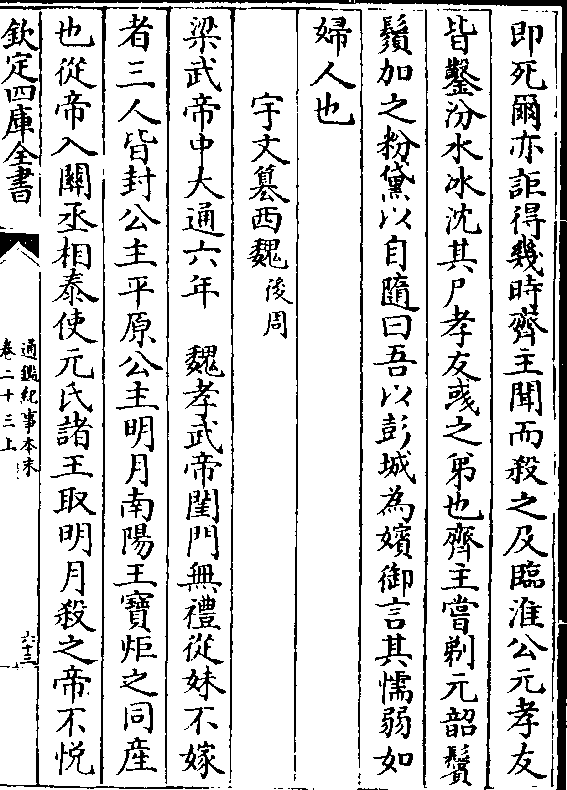 即死爾亦詎得幾時齊主聞而殺之及臨淮公元孝友
皆鑿汾水冰沈其尸孝友彧之弟也齊主嘗剃元韶鬢
鬚加之粉黛以自隨曰吾以彭城為嬪御言其懦弱如
婦人也
宇文簒西魏後周
梁武帝中大通六年 魏孝武帝閨門無禮從妹不嫁
者三人皆封公主平原公主明月南陽王寶炬之同産
也從帝入關丞相泰使元氏諸王取明月殺之帝不悦
欽定四庫全書
通鑑紀事本末
卷二十三上
六十三